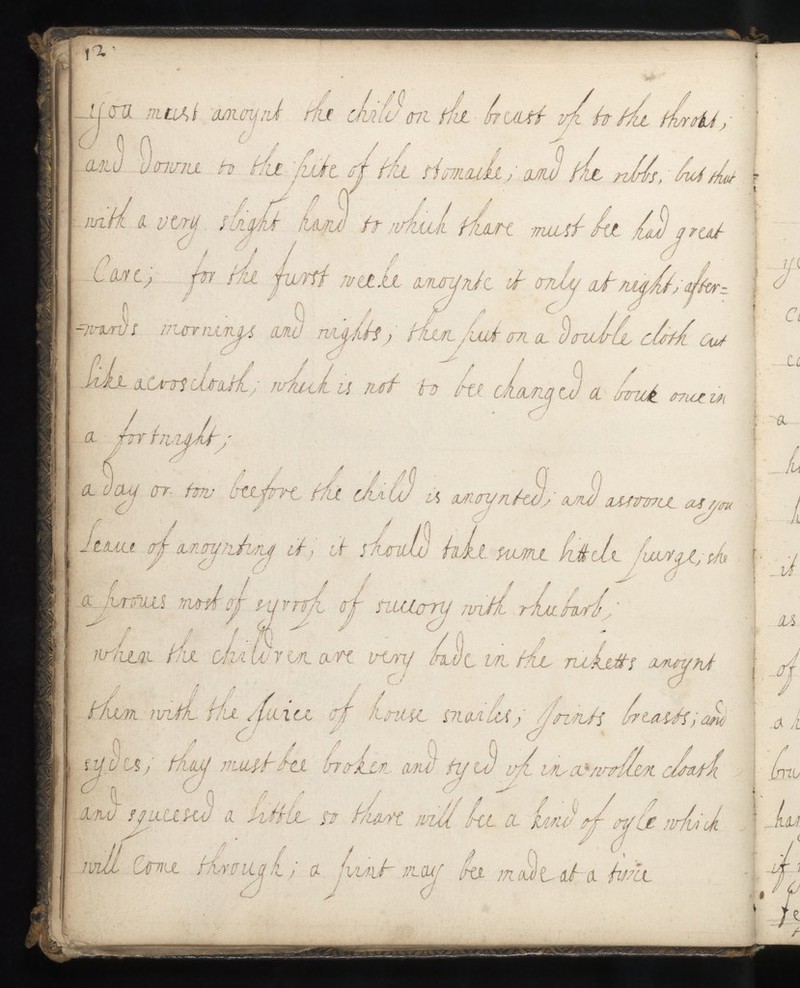 12
you must anoynt the child on the breast vp to the throat;
and downe to the pite of the stomacke; and the ribbs, but that
with a very slight hand to which thare must bee had great
Care; for the furst weeke anoynte it only at night; after=
=wards mornings and nights; then put on a double cloth cut
like a croscloath; which is not to bee changed a boue once in
a fortnight;
a day or tow beefore the child is anoynted; and assoone as you
Leaue of anoynting it; it should take sume littele purge; she
a proues most of syrrop of succory with rhubarb;
when the children are very bade in the ricketts anoynt
them with the Juice of house snailes; Joints breasts; and
sydes; thay must bee broken and tyed vp in a wollen cloath
and squeesed a little so thare will bee a kind of oyle which
will Come through; a pint may bee made at a time